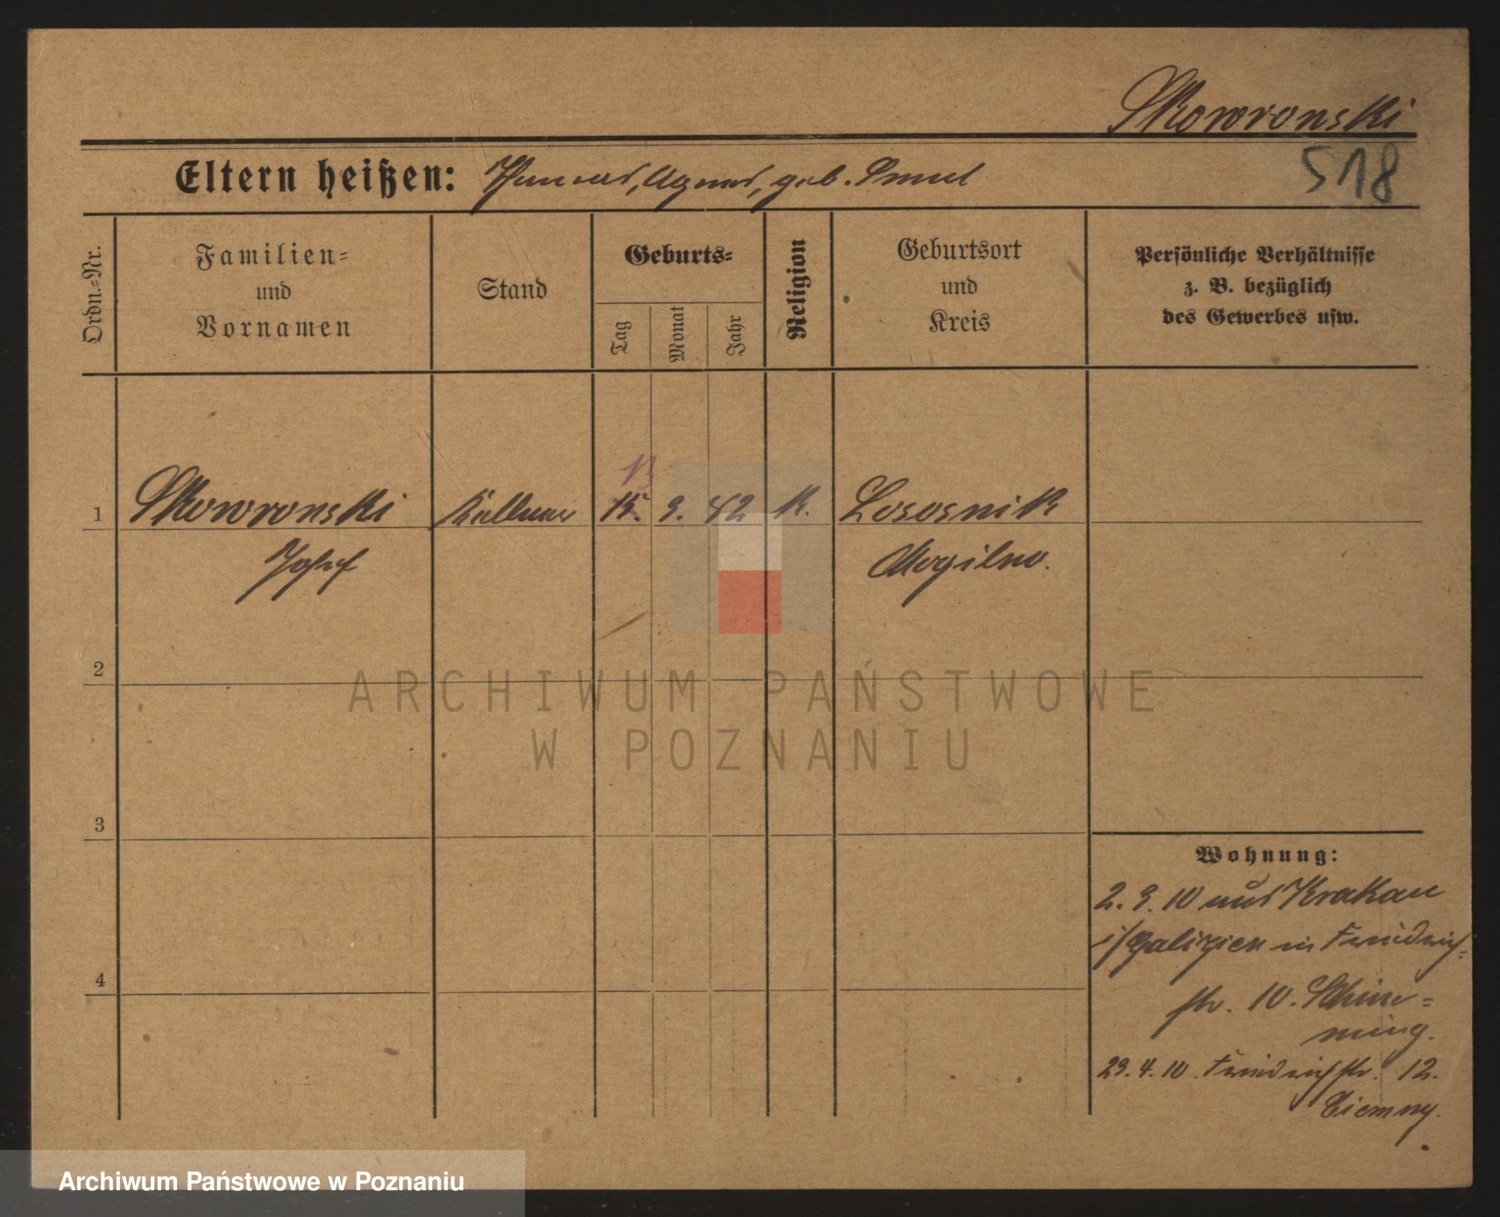 Skowronski
518
Eltern heißen: Thomas, Agnes, geb. Smul
Ordn.-Nr.
Familien-
und
Vornamen
Stand
Geburts-
Tag
Monat
Jahr
Religion
Geburtsort
und
Kreis
Persönliche Verhältnisse
z. B. bezüglich
des Gewerbes usw.
13
1 Skowronski Kellner 15. 3. 42 K. Lososnik
Josef Mogilno.
2
3
4
Wohnung:
2. 3. 10 aus Krakau
i/Galizien in Friedrich-
str. 10.
29. 4. 10. Friedrichstr. 12.
Ciemny.
ARCHIWUM PAŃSTWOWE
W POZNANIU
Archiwum Państwowe w Poznaniu